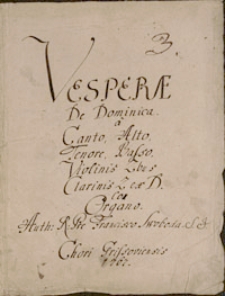 3.
VESPERÆ
De Dominica.
à
Canto, Alto,
Tenore, Basso,
Violinis 2bus
Clarinis 2 ex D.
con
Organo.
Auth: R. Francisco Swoboda
Chori Grissoviensis